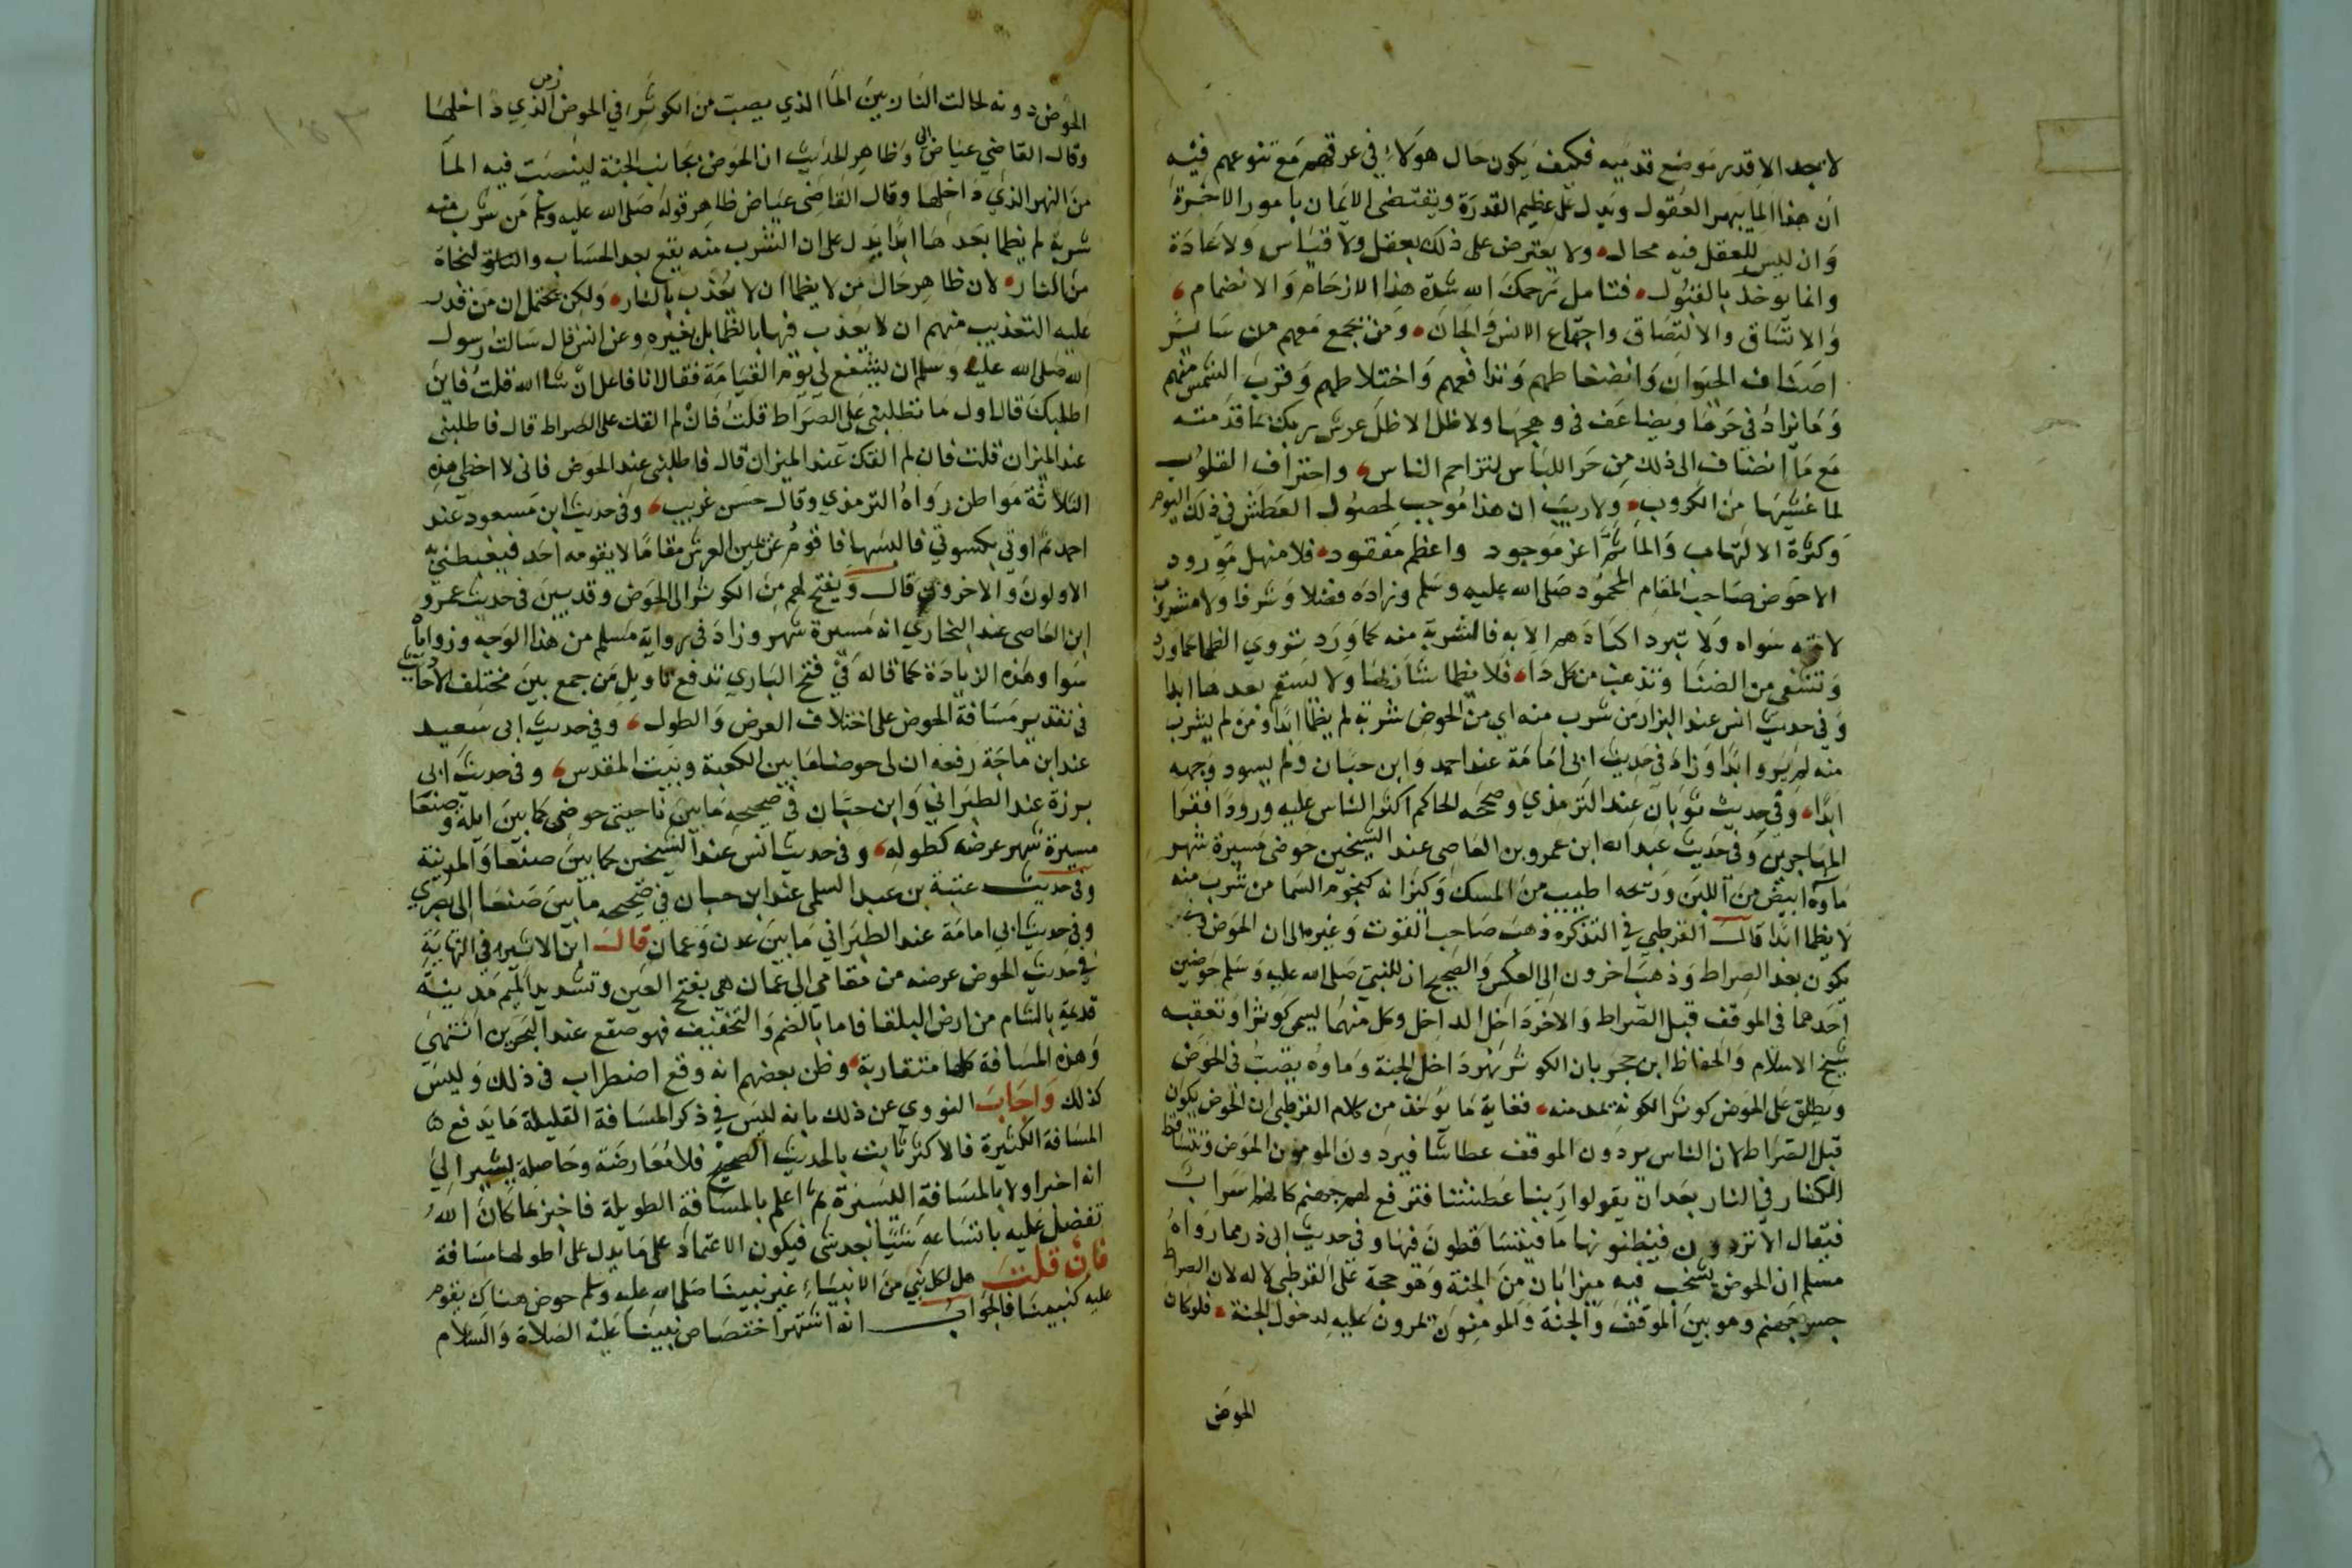 لا يجد الا قدر موضع قدميه فكيف يكون حال هولاء في عرقهم مع تنوعهم فيه
ان هذا لما يبهر العقول ويدل على عظيم القدرة ويقتضى الايمان بامور الاخرة
وان ليس للعقل فيه مجال ولا يعترض على ذلك بعقل ولا قياس ولا عادة
وانما يوخذ بالقبول فتامل يرحمك الله شدة هذا الازدحام والانضمام
والاتساق والالتصاق واجتماع الانس والجان ومن يجمع معهم من سائر
اصناف الحيوان وانضغاطهم وتدافعهم واختلاطهم وقرب الشمس منهم
وما يزاد في حرها ويضاعف في وهجها ولا ظل الا ظل عرش ربك بما قدمته
مع ما انضاف الى ذلك من حر الباس لتزاحم الناس واحتراف القلوب
لما غشيها من الكروب ولا ريب ان هذا موجب لحصول العطش في ذلك اليوم
وكثرة الالتهاب والما ثم اعز موجود واعظم مفقود فلا منهل مورود
الا حوض صاحب المقام المحمود صلى الله عليه وسلم وزاده فضلا وشرفا ولا مشرب
لامته سواه ولا تبرد اكبادهم الا به فالشربة منه كما ورد تروي الظما
وتشفى من الضنا وتذهب من كل دا فلا يظما شاربها ولا يسقم بعدها ابدا
وفي حديث انس عند البزار من شرب منه اي من الحوض شربة لم يظما ابدا ومن لم يشرب
منه لم يرو ابدا وزاد في حديث ابى امامة عند احمد وابن حبان ولم يسود وجهه
ابدا وفي حديث ثوبان عند الترمذي وصححه الحاكم اكثر الناس عليه ورودا فقرا
المهاجرين وفي حديث عبد الله ابن عمرو بن العاصى عند الشيخين حوضى مسيرة شهر
ماوه ابيض من اللبن وريحه اطيب من المسك وكيزانه كنجوم السما من شرب منه
لا يظما ابدا قال القرطبي في التذكره ذهب صاحب القوت وغيره الى ان الحوض
يكون بعد الصراط وذهب اخرون الى العكس والصحيح ان للنبي صلى الله عليه وسلم حوضين
احدهما في الموقف قبل الصراط والاخر داخل الداخل وكل منهما يسمى كوثرا وتعقبه
شيخ الاسلام والحفاظ ابن حجر بان الكوثر نهر داخل الجنة وماوه يصب في الحوض
ويطلق على الحوض كوثر الكونه يمد منه فغاية ما يوخذ من كلام القرطبي ان الحوض يكون
قبل الصراط لان الناس يردون الموقف عطاشا فيردون المومنون الحوض وتتساقط
الكفار في النار بعد ان يقولوا ربنا عطشنا فترفع لهم جهنم كانها سراب
فيقال الا تردون فيظنونها ما فيتساقطون فيها وفي حديث ابى ذر مما رواه
مسلم ان الحوض يشخب فيه ميزابان من الجنة وهو حجة على القرطبي لا له لان الصراط
جسر جهنم وهو بين الموقف والجنة والمومنون يمرون عليه لدخول الجنة فلو كان
الحوض
الحوض دونه لحالت النار بين الما الذي يصب من الكوثر في الحوض الذي داخلها
وقال القاضي عياض وظاهر الحديث ان الحوض بجانب الجنة لينصب فيه الما
من النهر الذي داخلها وقال القاضى عياض ظاهر قوله صلى الله عليه وسلم من شرب منه
شربة لم يظما بعدها ابدا يدل على ان الشرب منه يقع بعد الحساب والنجاة
من النار لان ظاهر حال من لا يظما ان لا يعذب بالنار ولكن يحتمل ان من قدر
عليه التعذيب منهم ان لا يعذب فيها بالظما بل بغيره وعن انس قال سالت رسول
الله صلى الله عليه وسلم ان يشفع لي يوم القيامة فقال انا فاعل ان شا الله قلت فاين
اطلبك قال اول ما تطلبنى على الصراط قلت فان لم القك على الصراط قال فاطلبنى
عند الميزان قلت فان لم القك عند الميزان قال فاطلبنى عند الحوض فانى لا اخطى هذه
الثلاثة مواطن رواه الترمذي وقال حسن غريب وفي حديث ابن مسعود عند
احمد ثم اوتى بكسوتي فالبسها فاقوم عن يمين العرش مقاما لا يقومه احد فيغبطنى به
الاولون والاخرون قال ويفتح لهم من الكوثر الى الحوض وقد بين في حديث عمرو
ابن العاصى عند البخاري انه مسيرة شهر وزاد في رواية مسلم من هذا الوجه وزواياه
سوا وهذه الزيادة كما قاله في فتح الباري تدفع تاويل من جمع بين مختلف الاحاديث
في تقدير مسافة الحوض على اختلاف العرض والطول وفي حديث ابى سعيد
عند ابن ماجة رفعه ان لى حوضا ما بين الكعبة وبيت المقدس وفي حديث ابى
برزة عند الطبراني وابن حبان في صحيحه ما بين ناحيتى حوضى كما بين ايلة وصنعا
مسيرة شهر عرضه كطوله وفي حديث انس عند الشيخين كما بين صنعا والمدينة
وفي حديث عتبة بن عبد السلمى عند ابن حبان في صحيحه ما بين صنعا الى بصري
وفي حديث ابي امامة عند الطبراني ما بين عدن وعمان قال ابن الاثير في النهاية
في حديث الحوض عرضه من مقامي الى عمان هي بفتح العين وتشديد الميم مدينة
قديمة بالشام من ارض البلقا فاما بالضم والتخفيف فهو صقع عند البحرين انتهى
وهذه المسافة كلها متقاربة وظن بعضهم انه وقع اضطراب في ذلك وليس
كذلك واجاب النووى عن ذلك بانه ليس في ذكر المسافة القليلة ما يدفع
المسافة الكثيرة فالاكثر ثابت بالحديث الصحيح فلا معارضة وحاصله يشير الى
انه اخبر اولا بالمسافة اليسيرة ثم اعلم بالمسافة الطويلة فاخبر بما كان الله
تفضل عليه باتساعه شيئا بعد شى فيكون الاعتماد على ما يدل على اطولها مسافة
فان قلت هل لكل نبي من الانبياء غير نبينا صلى الله عليه وسلم حوض هناك يقوم
عليه كنبينا فالجواب انه اشتهر اختصاص نبينا عليه الصلاة والسلام